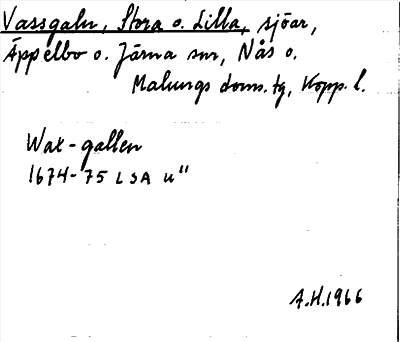 Vassgaln, Stora o. Lilla, sjöar,
Äppelbo o. Järna snr, Nås o.
Malungs doms. tg, Kopp. l.
Wax-gallen
1674-75 LSA u"
A.H. 1966